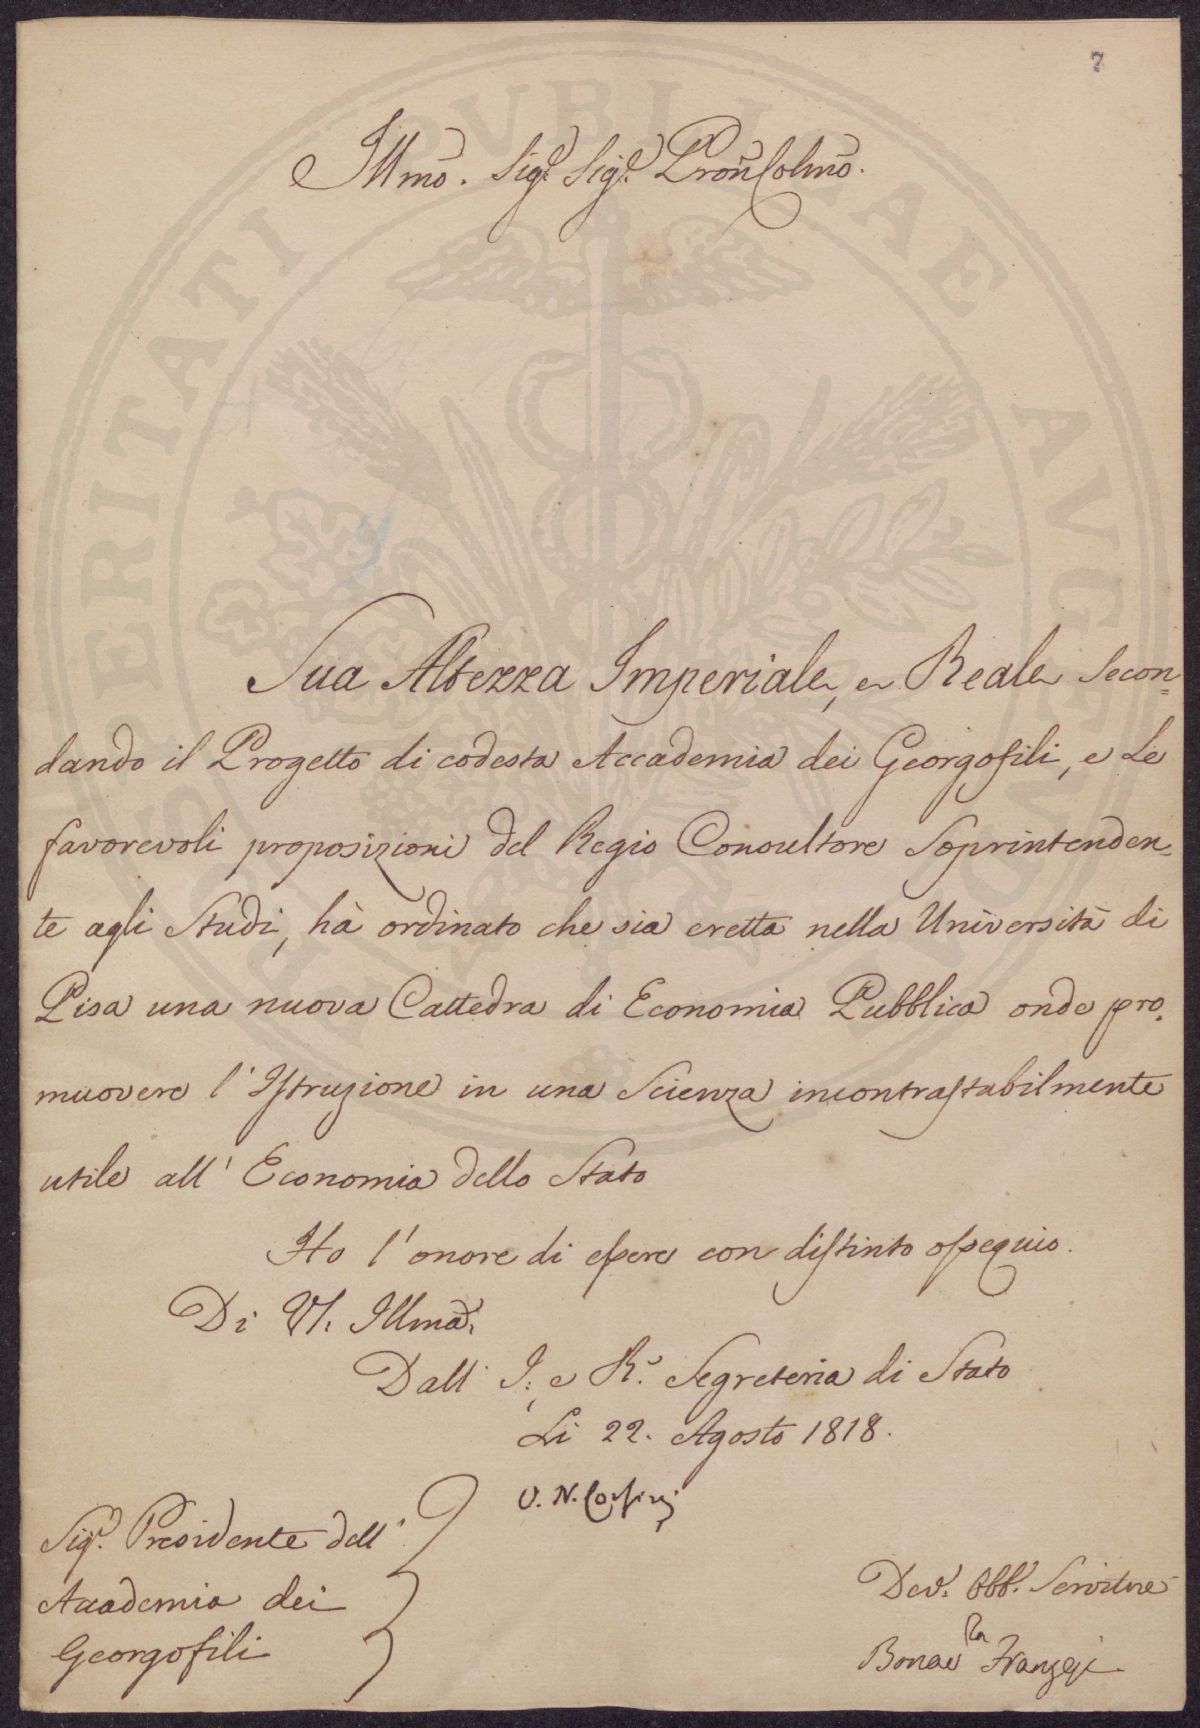 7
Illmõ. Sigʳ. Sigʳ. Prõn Colmõ.
Sua Altezza Imperiale, e Reale Secon=
dando il Progetto di codesta Accademia dei Georgofili, e Le
favorevoli proposizioni del Regio Consultore Soprintenden=
te agli Studi, hà ordinato che sia eretta nella Università di
Pisa una nuova Cattedra di Economia Pubblica onde pro.
muovere l'Istruzione in una Scienza incontrastabilmente
utile all'Economia dello Stato
Ho l'onore di essere con distinto ossequio.
Di VS. Illmã.
Dall' I. e R. Segreteria di Stato
Li 22. Agosto 1818.
V. N. Corsini
Sigʳ. Presidente dell'
Accademia dei
Georgofili
Dev. Obb. Servitore
PUBLICAE AUG
PERITATI